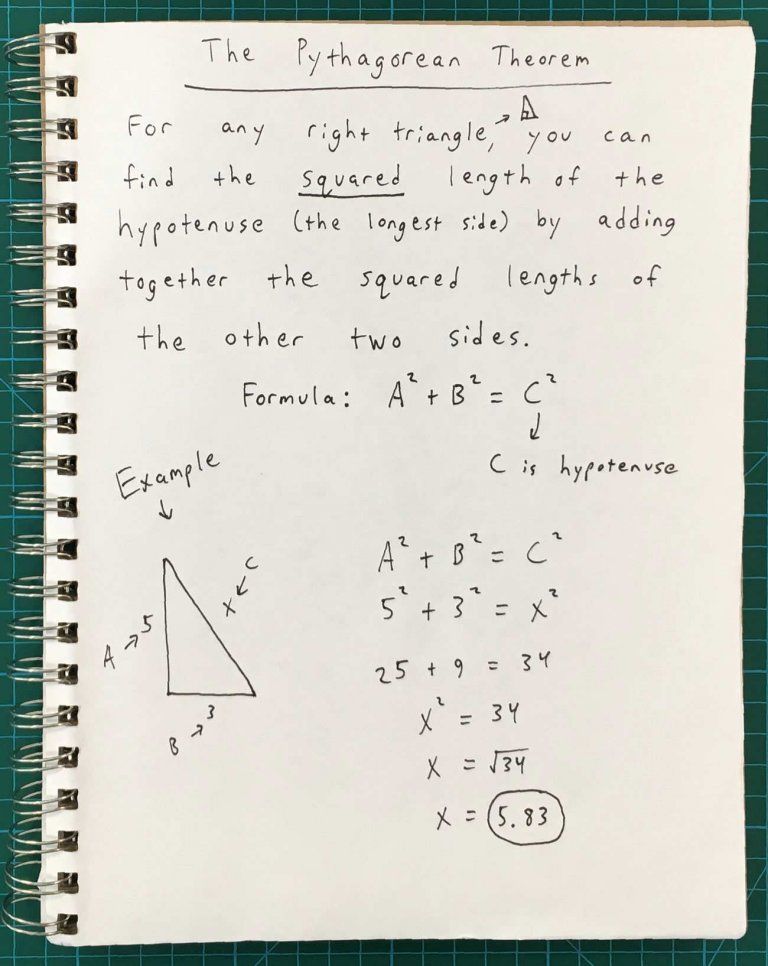 The Pythagorean Theorem
For any right triangle, → you can
find the squared length of the
hypotenuse (the longest side) by adding
together the squared lengths of
the other two sides.
Formula: A² + B² = C²
↓
C is hypotenuse
Example
↓
C
X ↙
A → 5
B → 3
A² + B² = C²
5² + 3² = X²
25 + 9 = 34
X² = 34
X = √34
X = 5.83